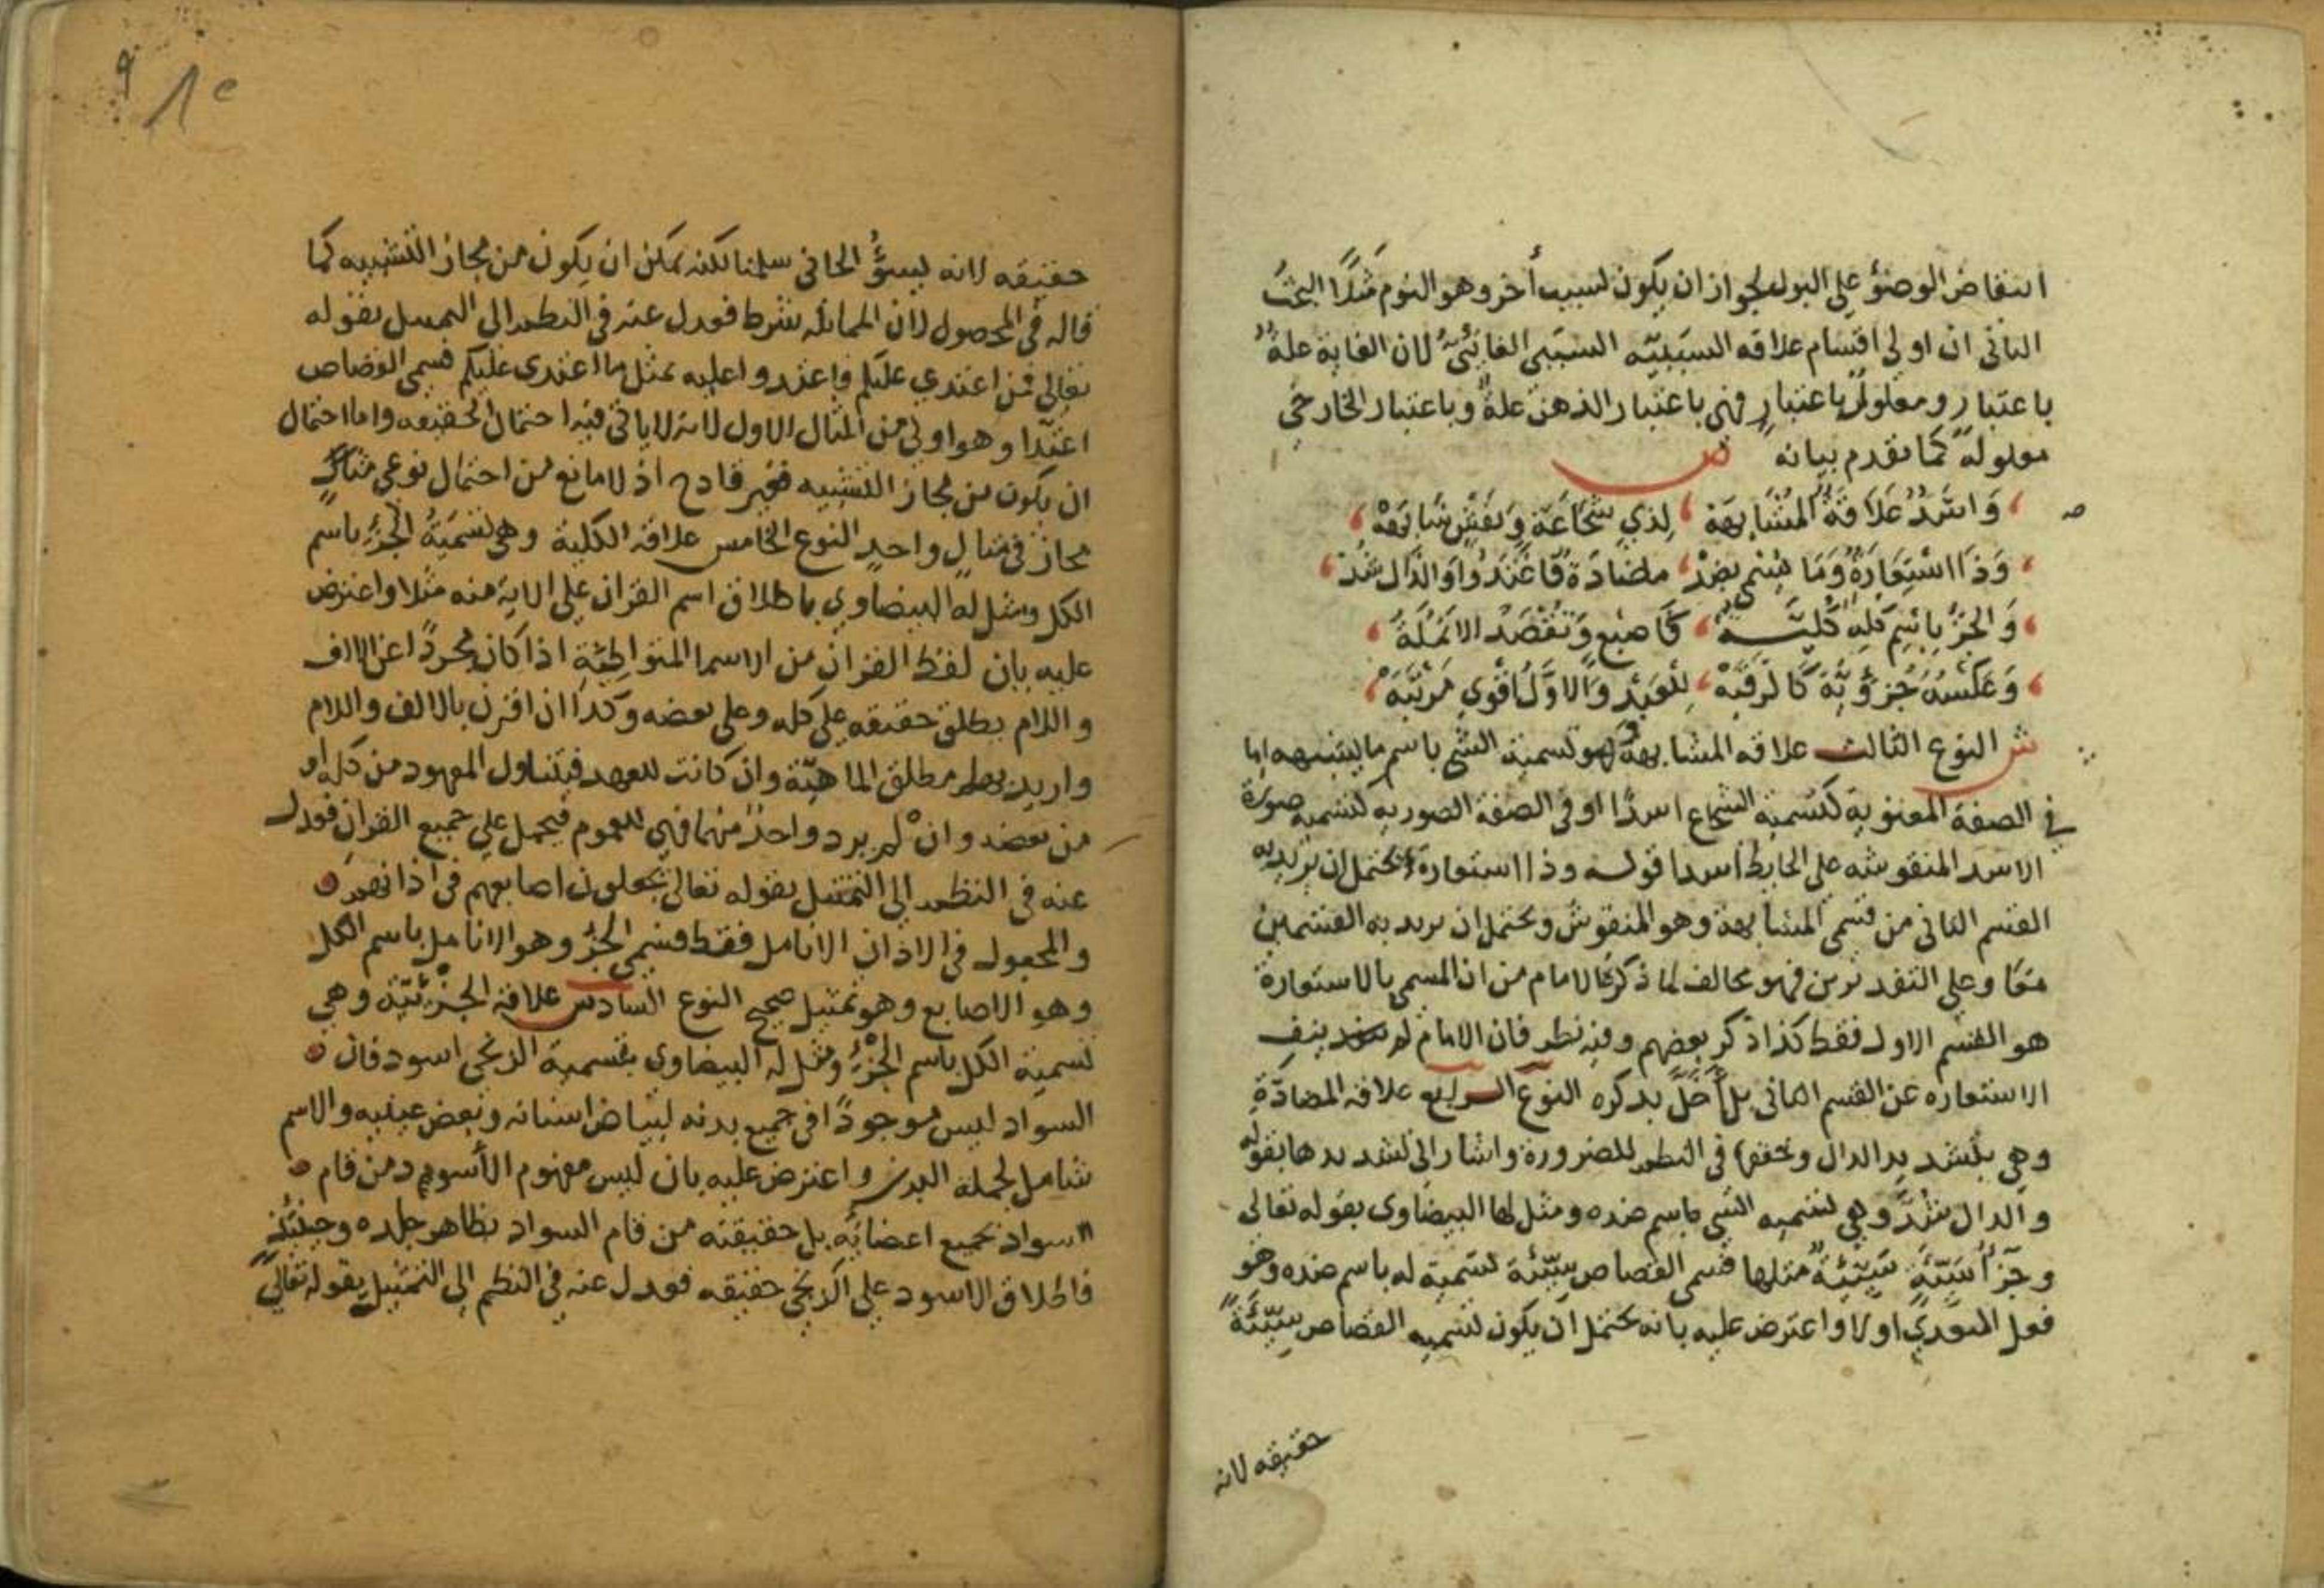 انتقاض الوضؤ على البول لجواز ان يكون لسبب أخر وهو النوم مَثَلًا البحث
الثانى ان اولى اقسام علاقه السَبَبيّه السَبَبى الغائىّ لان الغاية علةٌ
باعتبار ومعلولٌ باعتبارٍ فهى باعتبار الذهن علةٌ وباعتبار الخارجى
معلولةٌ كما تقدم بيانه ص
وَاسَدٌ عَلَاقَةُ المُشَابهَة لِذي شَجَاعَة وَنَقْشٍ شَابَهَهْ
وَذَا اسْتِعَارَةٌ وَمَا سُمي بضِدْ مضَادَة فَاعْتَدُوا وَالدَّال شُدّْ
وَالجزُ بِاسْمِ كُلِّهِ كُلِّيَّةٌ كَأَصْبُع وَتُقْصَدُ الانْمُلَةُ
وَعَكْسُهُ جُزؤيَّة كَالرَقَبَهْ لِلعَبْدِ وَالاوَّلُ اقْوي مَرْتَبَهْ
ش النوع الثالث علاقه المشابهة وهو تسمية الشى باسم ما يشبهه اما
في الصفة المعنوية كتسمية الشجاع اسدًا او فى الصفة الصوريه كتسمية صورة
الاسد المنقوشه على الحايط اسدا قوله وذا استعارة يحتمل ان يريد به
القسم الثانى من قسمى المشابهة وهو المنقوش ويحتمل ان يريد به القسمين
معًا وعلى التقديرين فهو مخالف لما ذكره الامام من ان المسمى بالاستعارة
هو القسم الاول فقط كذا ذكر بعضهم وفيه نظر فان الامام لم ينفِ
الاستعاره عن القسم الثانى بل أَخَلَّ بذكره النوع الرابع علاقه المضادّةِ
وهي بتشديد الدال وتخفف فى النظم للضرورة واشار الى تشديدها بقوله
والدال شُدَّ وهي تسميه الشى باسم ضده ومثل لها البيضاوى بقوله تعالى
وجَزآ سَيّئَةٍ سَيّئَةٌ مثلها فسمى القصاص سَيّئَة تسمية له باسم ضده وهو
فعل المتعدي اولا واعترض عليه بانه يحتمل ان يكون تسميه القصاص سَيّئَةً
حقيقه لانه
٩
حقيقه لانه يسؤُ الجانى سلمنا لكنه يمكن ان يكون من مجاز التشبيه كما
قاله فى المحصول لان المماثله شرط فعدل عنه فى النظم الى التمثيل بقوله
تعالى فمن اعتدي عليكم فاعتدوا عليه بمثل ما اعتدى عليكم فسمى القصاص
اعتدا وهو اولى من المثال الاول لانه لاياتى فيه احتمال الحقيقه واما احتمال
ان يكون من مجاز التشبيه فغير قادح اذ لا مانع من احتمال نوعى
مجاز فى مثالٍ واحدٍ النوع الخامس علاقه الكلية وهى تَسْمِيَةُ الجزُ باسم
الكل ومثل له البيضاوي باطلاق اسم القران على الاية منه مثلا واعترض
عليه بان لفظ القران من الاسما المتواطئِةِ اذا كان مجردًا عن الالف
واللام يطلق حقيقه على كله وعلى بعضه وكذا ان اقترن بالالف واللام
واريد بها مطلق الماهيّة وان كانت للعهد فيتناول المعهود من كله او
من بعضه وان لم يرد واحدٌ منهما فهى للعموم فيحمل علي جميع القران فعدل
عنه فى النظم الى التمثيل بقوله تعالى يجعلون اصابعهم فى اذانهم
والمجعول فى الاذان الانامل فقط فسمى الجزُ وهو الانامل باسم الكل
وهو الاصابع وهو تمثيل صحيح النوع السادس علاقه الجزْئيّة وهي
تسمية الكل باسم الجزْءِ ومثل له البيضاوى بتسمية الزنجى اسود فان
السواد ليس موجودًا فى جميع بدنه لبياض اسنانه وبعض عينيه والاسم
شامل لجملة البدن واعترض عليه بان ليس مفهوم الأسود من قام
السواد بجميع اعضائه بل حقيقته من قام السواد بظاهر جلده وحينئذٍ
فاطلاق الاسود على الزنجى حقيقه فعدل عنه فى النظم الى التمثيل بقوله تعالى